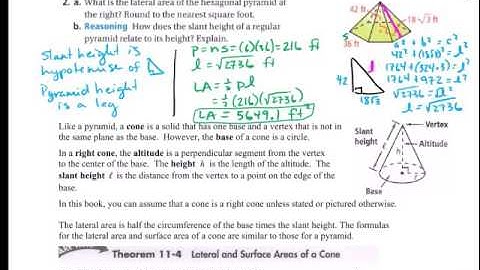 2. a. What is the lateral area of the hexagonal pyramid at
the right? Round to the nearest square foot.
b. Reasoning How does the slant height of a regular
pyramid relate to its height? Explain.
42 ft
18√3 ft
36 ft
Slant height is
hypotenuse of
Pyramid height
is a leg
P = ns = (6)(36) = 216 ft
l = √2736 ft
LA = ½ pl
= ½ (216)(√2736)
LA = 5649.1 ft²
42
18√3
l
a² + b² = c²
42² + (18√3)² = l²
1764 + (324·3) = l²
1764 + 972 = l²
√2736 = √l²
l = √2736
Like a pyramid, a cone is a solid that has one base and a vertex that is not in
the same plane as the base. However, the base of a cone is a circle.
In a right cone, the altitude is a perpendicular segment from the vertex
to the center of the base. The height h is the length of the altitude. The
slant height ℓ is the distance from the vertex to a point on the edge of the
base.
In this book, you can assume that a cone is a right cone unless stated or pictured otherwise.
Slant
height
Vertex
Altitude
h
Base
The lateral area is half the circumference of the base times the slant height. The formulas
for the lateral area and surface area of a cone are similar to those for a pyramid.
Theorem 11-4 Lateral and Surface Areas of a Cone